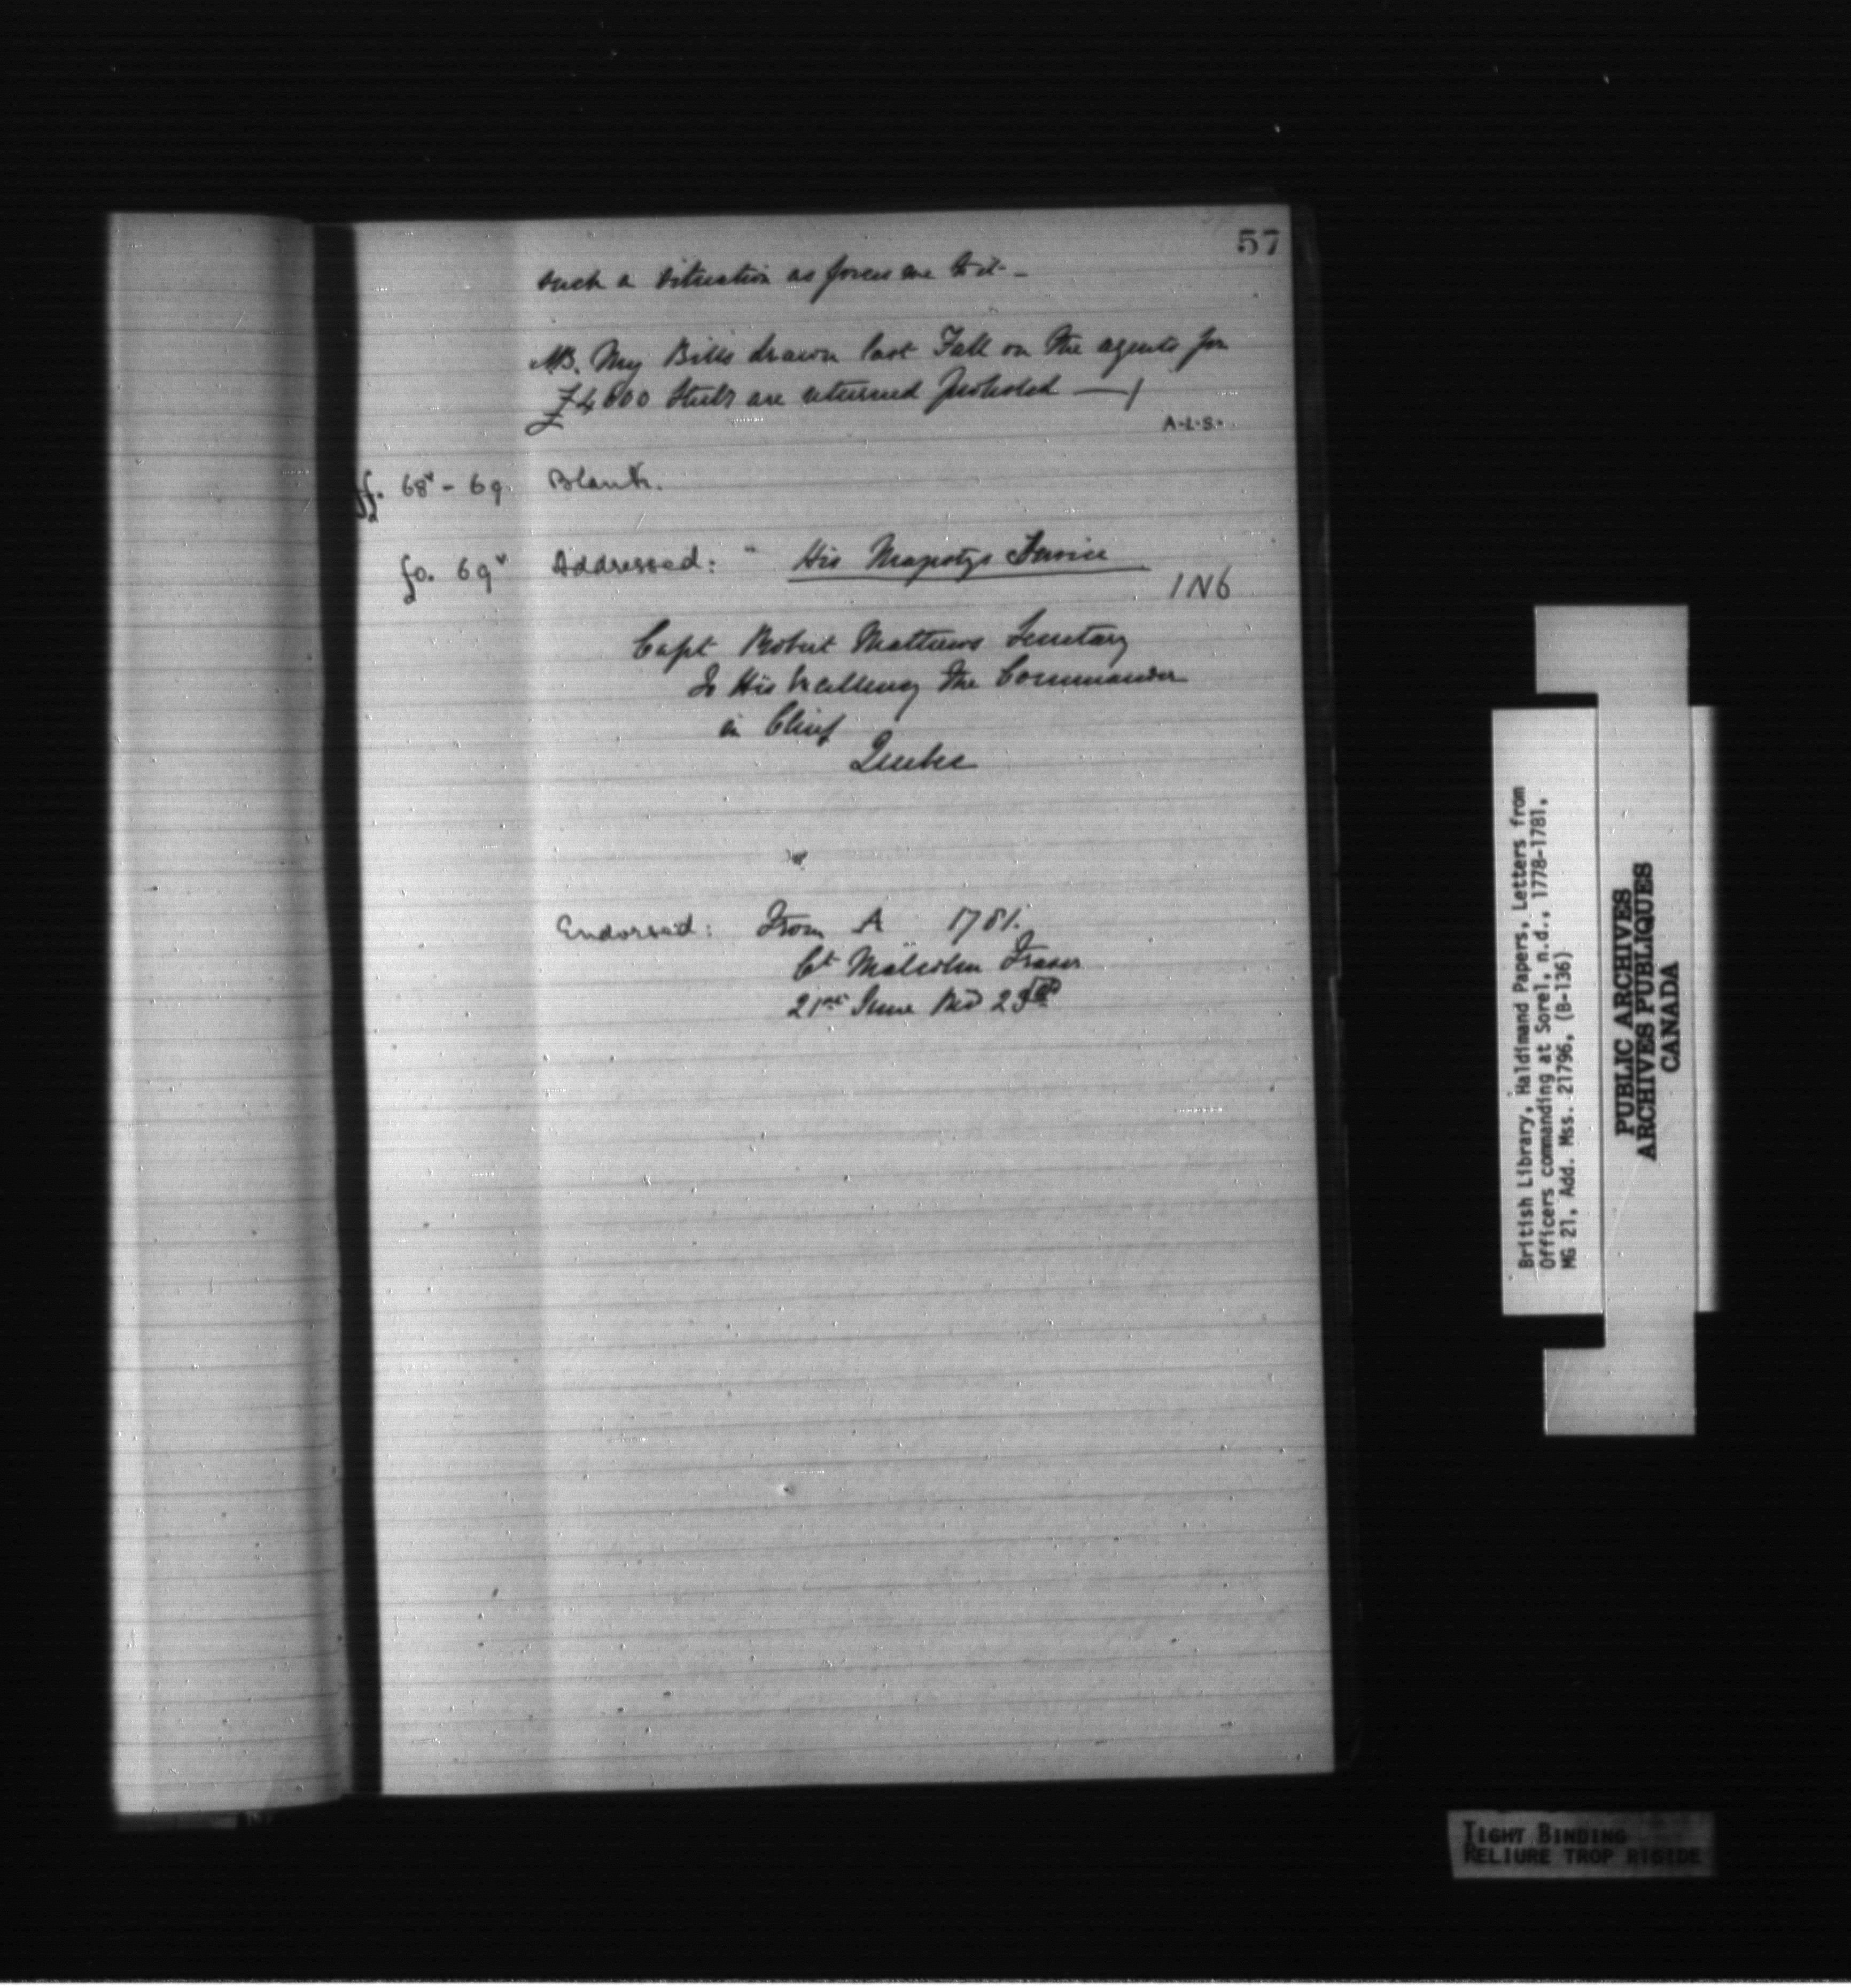 57
such a situation as forces me to it -
NB. My Bills drawn last Fall on the agents for
£4000 Sterls are returned protested —/
A.L.S.
ff. 68v - 69 Blank.
fo. 69v Addressed: " His Majestys Service
1N6
Capt Robert Mathews Secretary
To His Excellency the Commander
in Chief
Quebec
Endorsed: From A 1781.
Ct Malcolm Fraser
21st June Recd 23rd
British Library, Haldimand Papers, Letters from
Officers commanding at Sorel, n.d., 1778-1781,
MG 21, Add. Mss. 21796, (B-136)
PUBLIC ARCHIVES
ARCHIVES PUBLIQUES
CANADA
TIGHT BINDING
RELIURE TROP RIGIDE